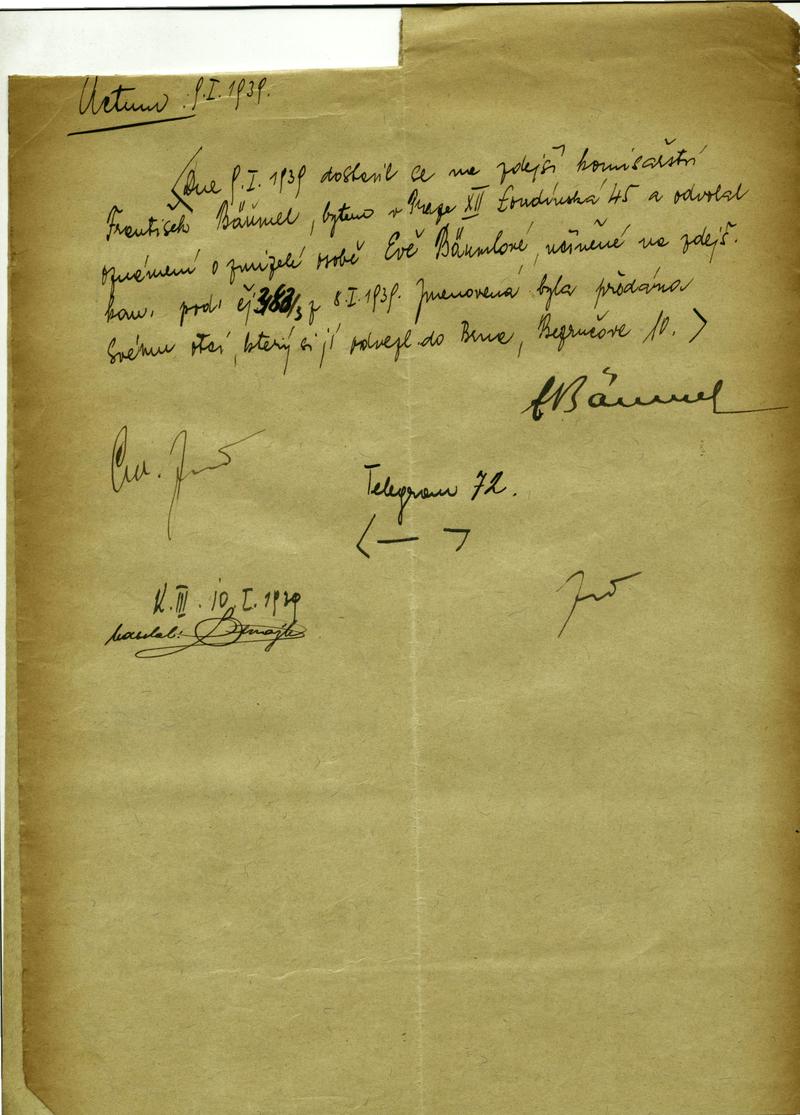 Actum 9.I.1939.
Dne 9.I.1939 dostavil se na zdejší komisařství
František Bäumel, bytem v Praze XII Londýnská 45 a odvolal
oznámení o zmizelé osobě Evě Bäumlové, učiněné na zdejš.
kom. pod čj 3183/3 z 8.I.1939. Jmenovaná byla předána
svému otci, který si jí odvezl do Brna, Bezručova 10.
Bäumel
Telegram 72.
K.III. 10.I.1939